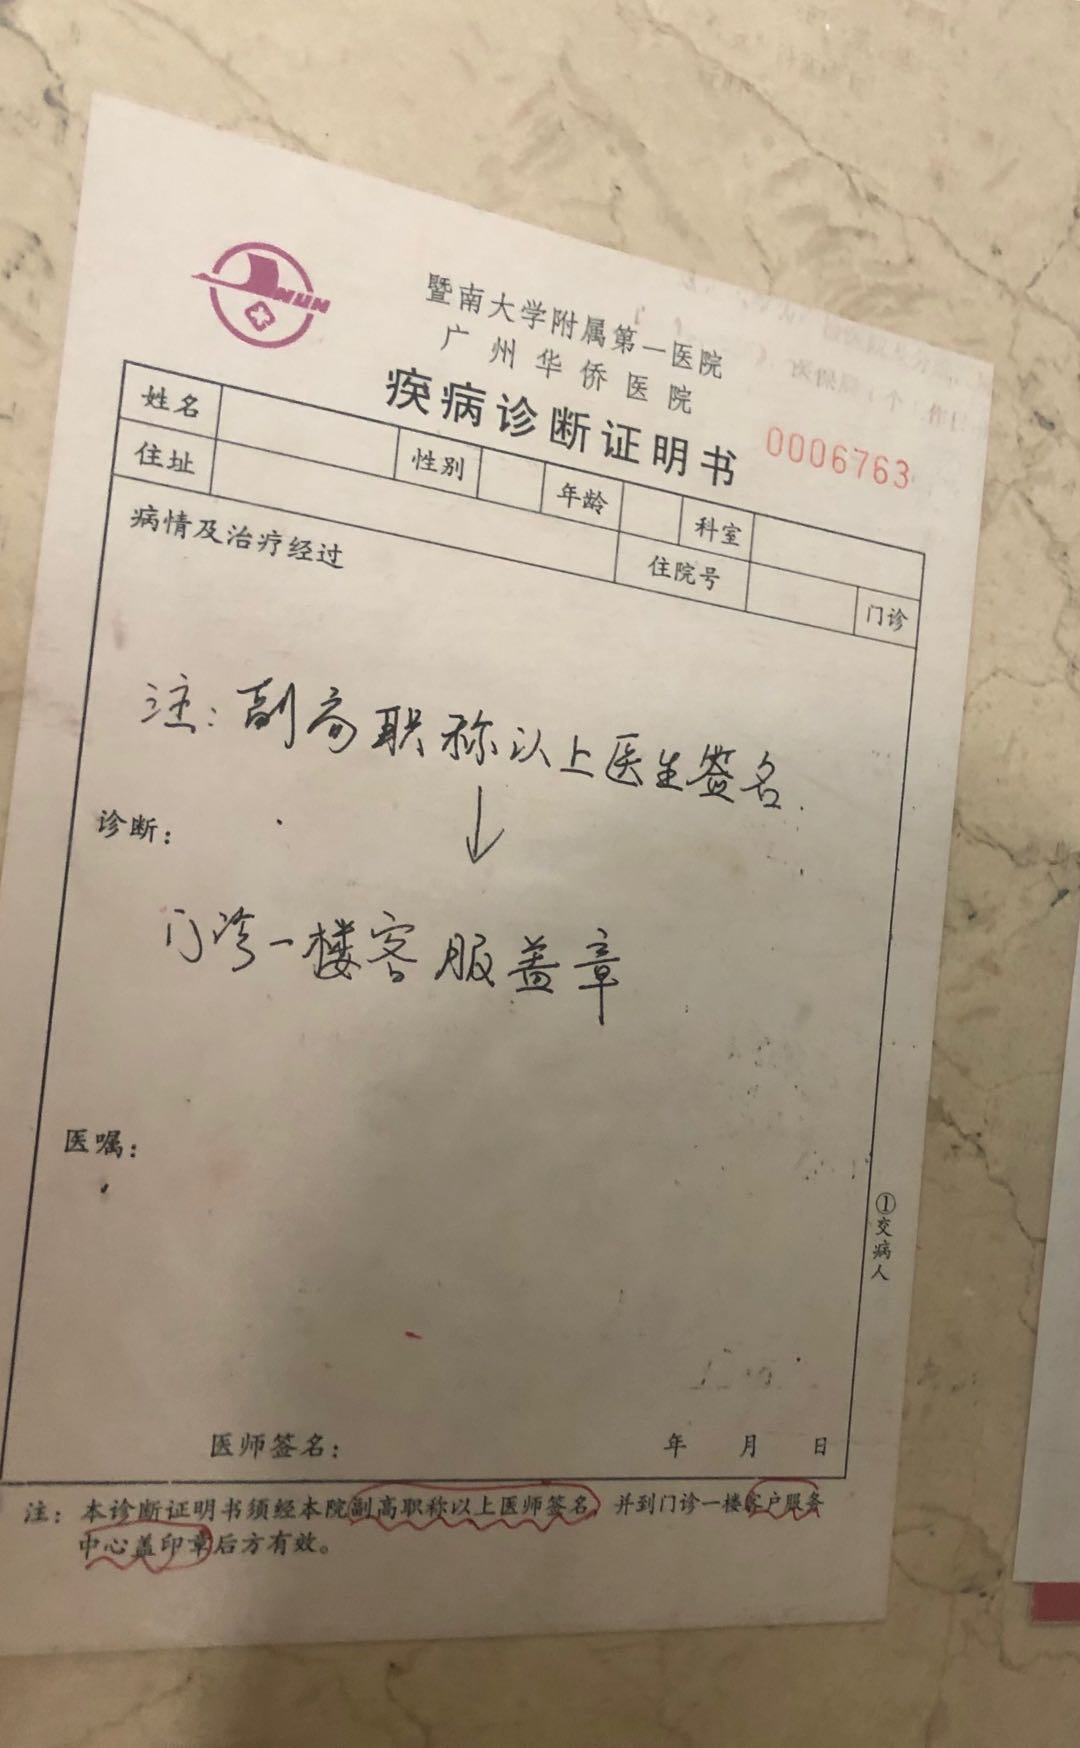 暨南大学附属第一医院
广州华侨医院
疾病诊断证明书
0006763
姓名
性别
年龄
科室
住址
住院号
门诊
病情及治疗经过
注:副高职称以上医生签名.
↓
诊断:
门诊一楼客服盖章
医嘱:
①交病人
医师签名:
年 月 日
注: 本诊断证明书须经本院副高职称以上医师签名, 并到门诊一楼客户服务
中心盖印章后方有效。